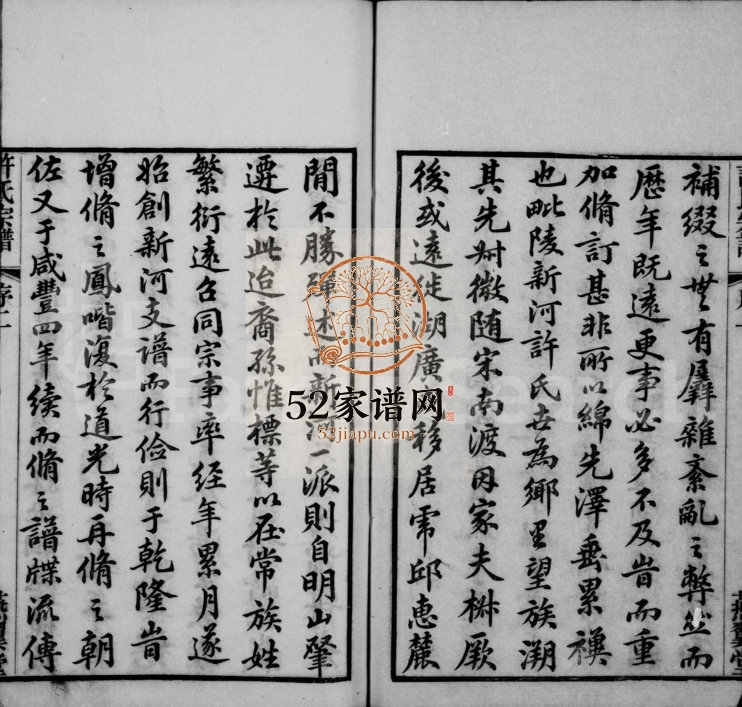 補綴之無有羼雜紊亂之弊然而
歷年既遠更事必多不及旹而重
加脩訂甚非所以綿先澤垂累禩
也毗陵新河許氏世為鄉里望族溯
其先尌微随宋南渡因家夫椒厥
後或遠徙湖廣移居雩邱惠麓
許氏宗譜
序二
間不勝殫述而新一派則自明山肇
遷於此迨裔孫惟標等以在常族姓
繁衍遠召同宗事率經年累月遂
始創新河支譜而行儉則于乾隆旹
增脩之鳳喈復於道光時再脩之朝
佐又于咸豐四年續而脩之譜牒流傳
52家谱网
52jiapu.com